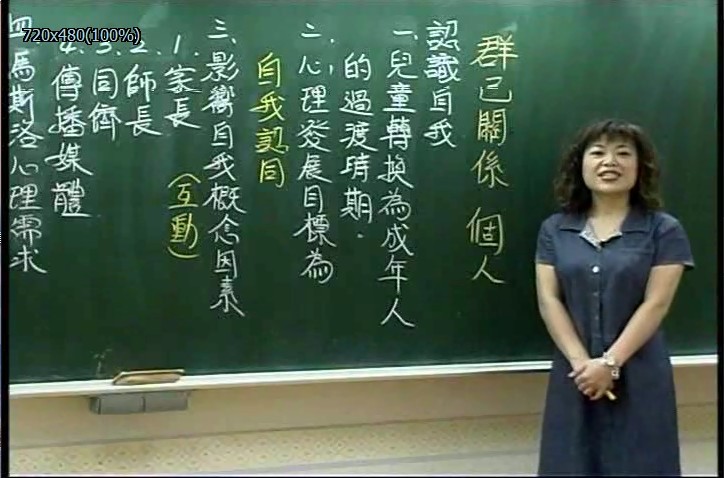 720x480(100%)
群己關係 個人
認識自我
一.兒童轉換為成年人
的過渡時期.
二.心理發展目標為
自我認同
三.影響自我概念因素
(互動)
1.家長
2.師長
3.同儕
4.傳播媒體
四.馬斯洛心理需求